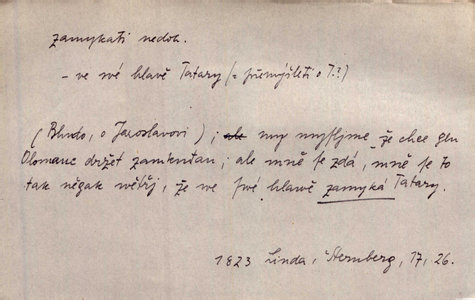 zamykati nedok.
- ve své hlavě Tatary (= přemýšleti o T.?)
(Bludo, o Jaroslavovi); ale my mysljme, že chce gen
Olomauc držet zamknutau; ale mně se zdá, mně se to
tak něgak wětřj, že we swé hlawě zamyká Tatary.
1823 Linda, Šternberg, 17, 26.